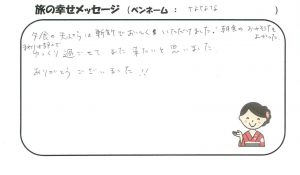 旅の幸せメッセージ（ペンネーム： ）
夕食の天ぷらは新鮮でおいしくいただけました！朝食のおかずも
よかった
ゆっくり過ごせて また来たいと思いました。
ありがとうございました!!